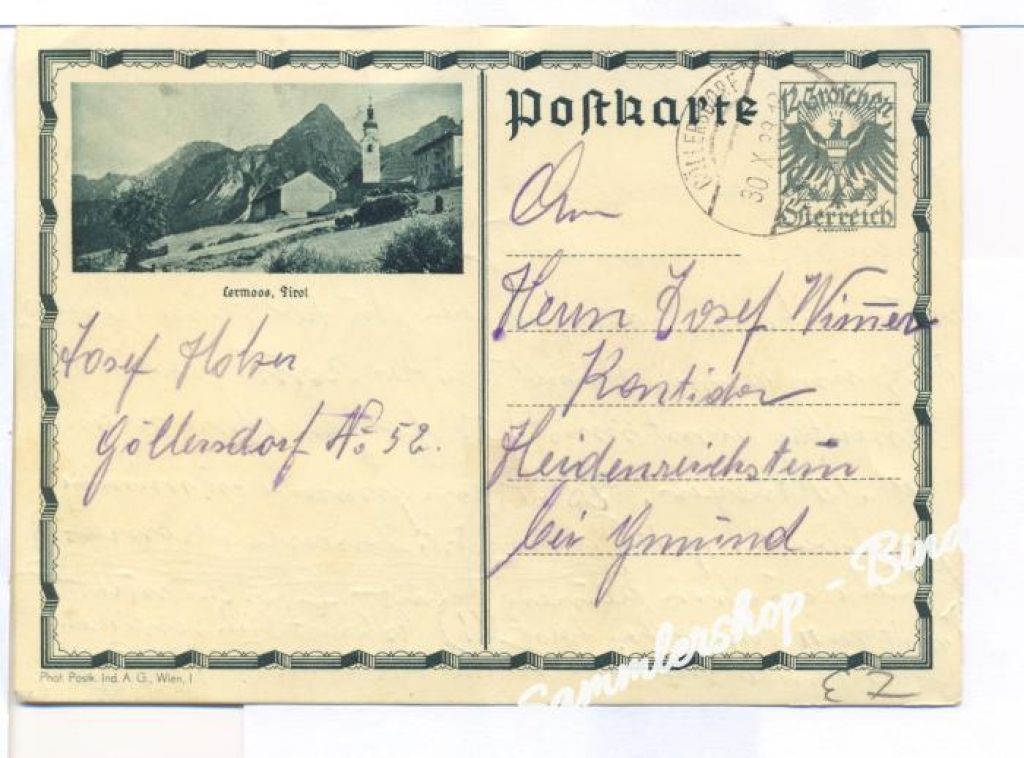 Postkarte
12 Groschen
Österreich
GÖLLERSDORF
30.X.
Lermoos, Tirol
An
Herrn Josef Wimmer
Heidenreichstein
bei Gmünd
Josef Holzer
Göllersdorf No 52.
Phot. Postk. Ind. A. G., Wien, I
Sammlershop - Bind